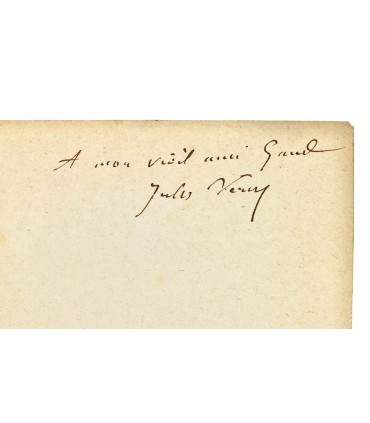 A mon vieil ami Gand
Jules Verne